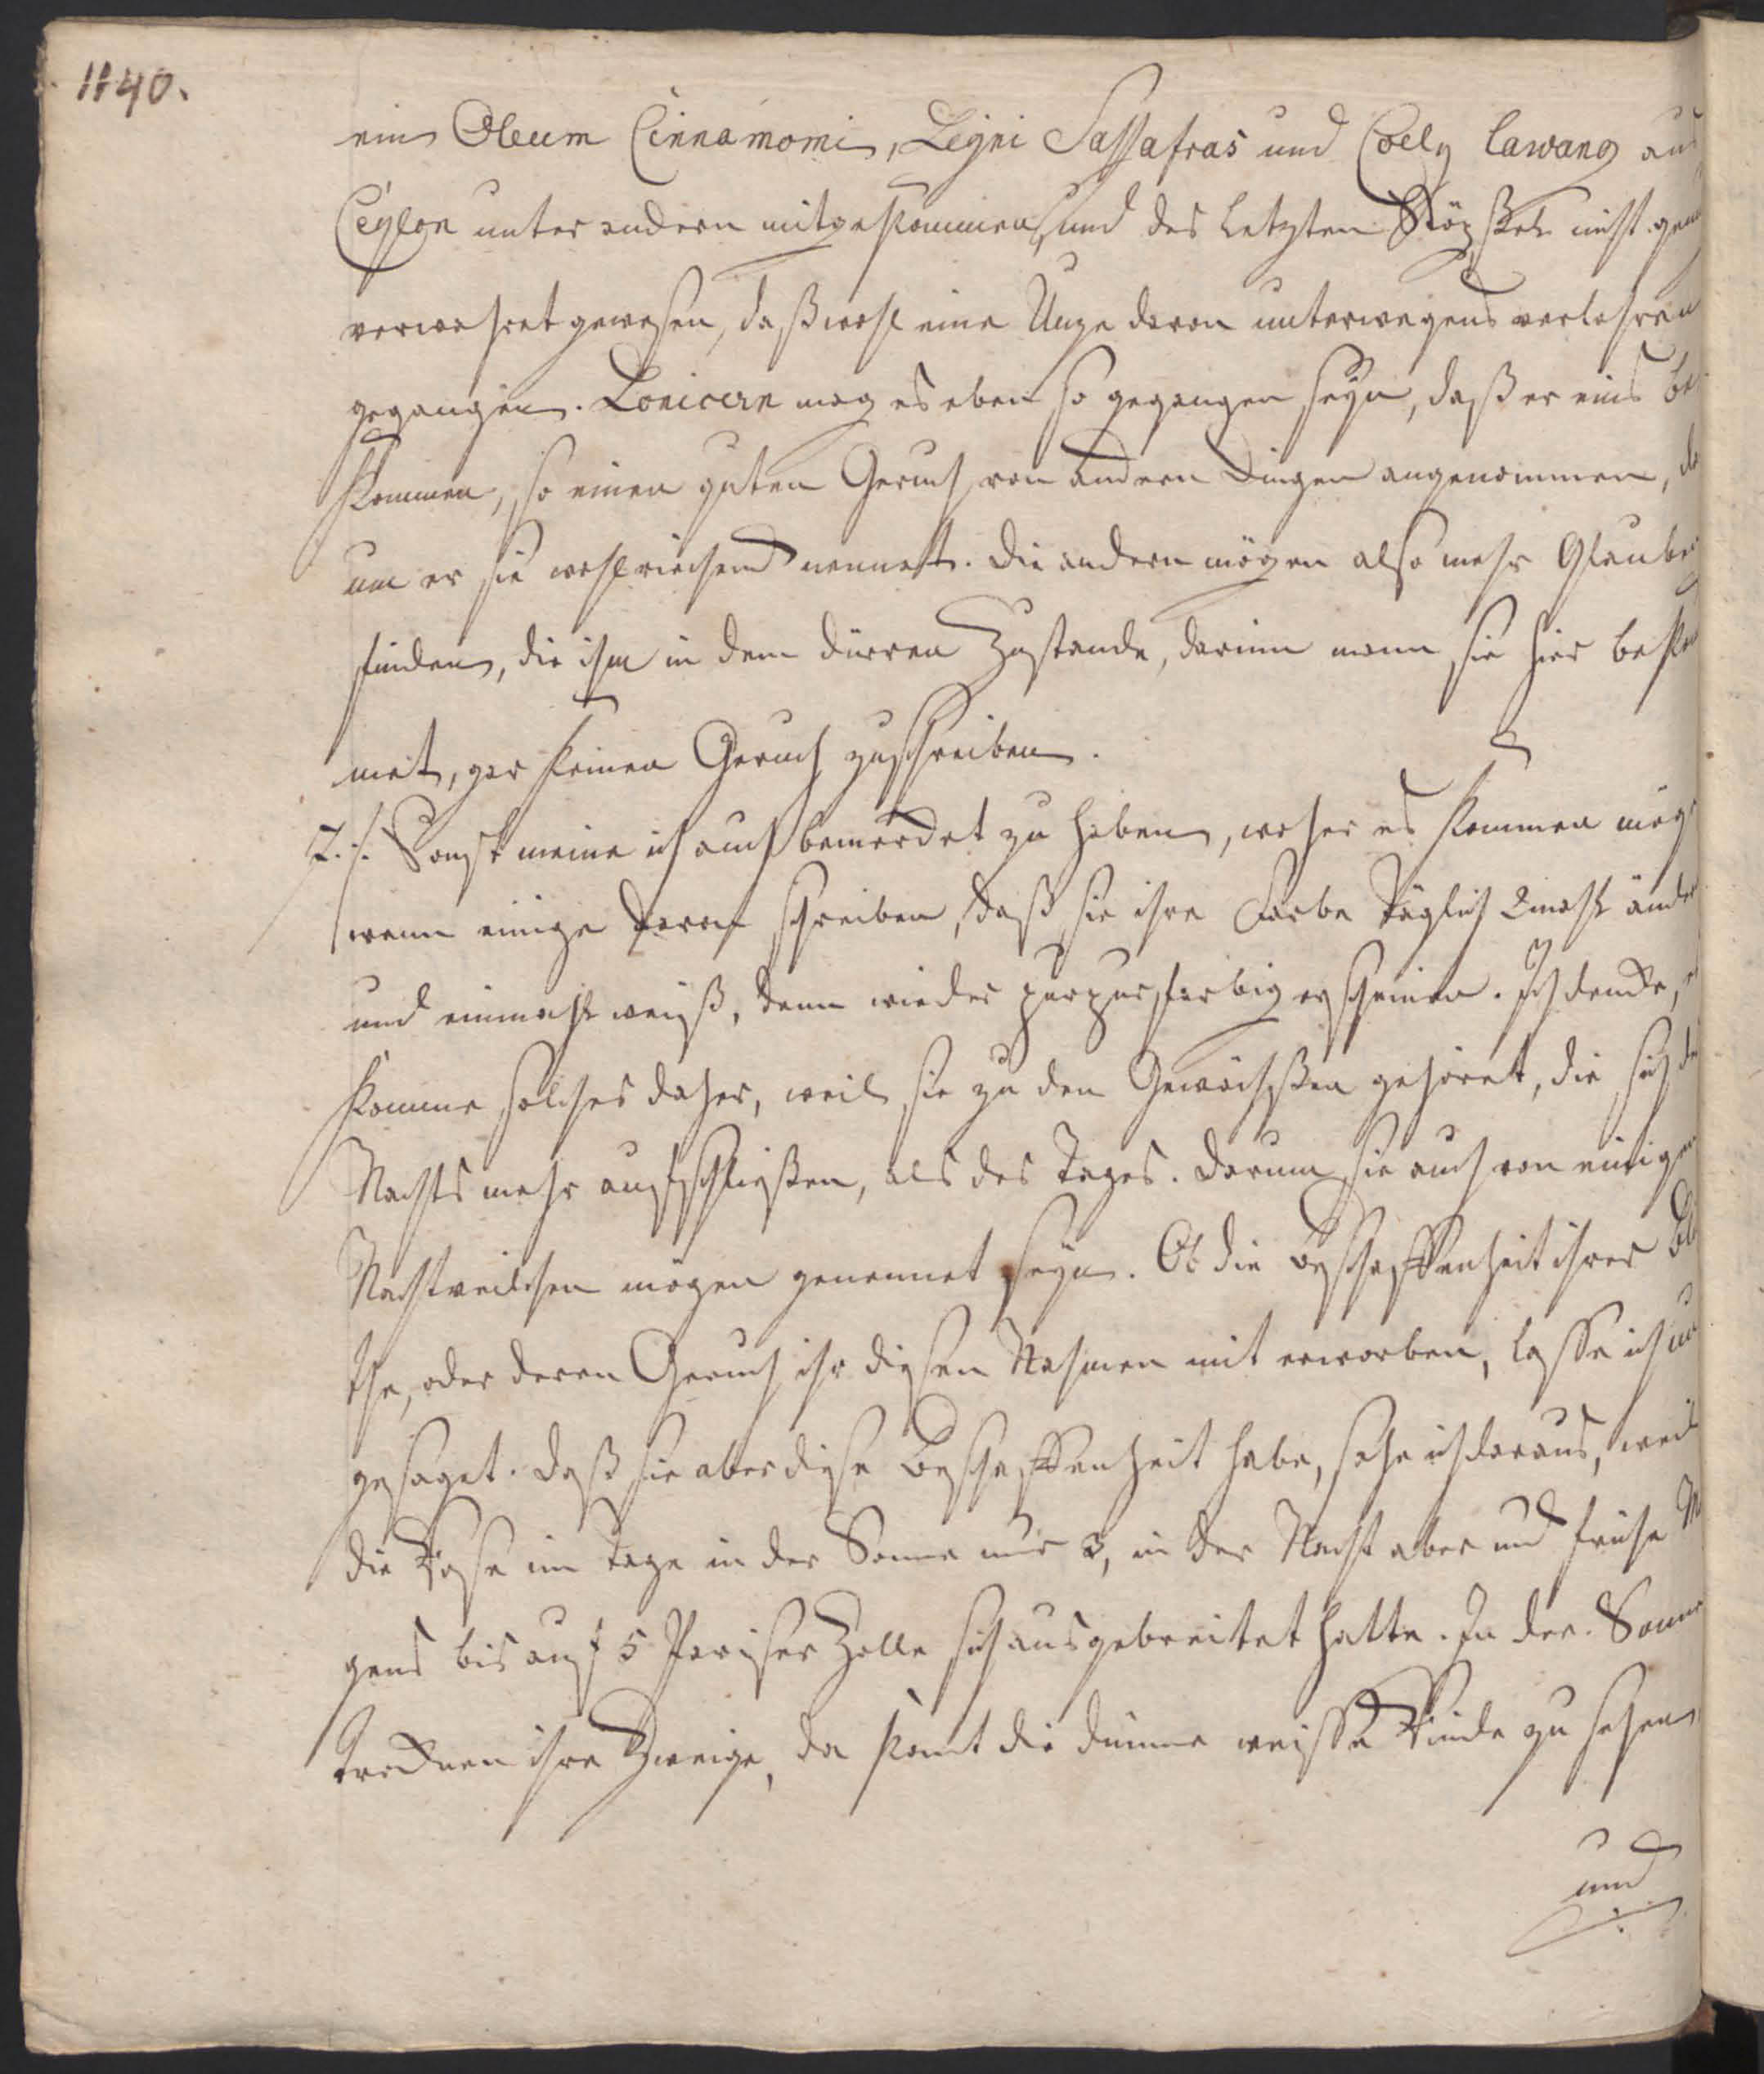 1140.
ein Oleum Cinnamomi, Ligni Sassafras und Coely lawang aus
Ceylon unter andern mitgekommen, und des letzten Stöpssel nicht genu
verwahret gewesen, daß wohl eine Unze davon unterwegens verlohren
gegangen. Lonicern mag es eben so gegangen seyn, daß er eins be
kommen, so einen guten Geruch von andern Dingen angenommen, da
um er sie wohlriechend nennet. Die andern mögen also mehr Glauben
finden, die ihm in dem dürren Zustande, darinn mann sie hier bekom
met, gar keinen Geruch zuschreiben.
7. /. Sonst meine ich auch bemerket zu haben, woher es kommen möge
wenn einige davon schreiben, daß sie ihre Farbe täglich 2mahl ändere
und einmahl weiß, denn wieder purpurfarbig erscheinen. Ich dencke,
komme solches daher, weil sie zu den Gewächsßen gehöret, die sich des
Nachts mehr aufschließen, als des Tages. Darum sie auch von einigen
Nachtveilchen mögen genennet seyn. Ob die Beschaffenheit ihrer Blü
the, oder deren Geruch ihr diesen Nahmen mit erworben, lasse ich un
gesaget. Daß sie aber diese Beschaffenheit habe, sehe ich daraus, weil
die Rose im Tage in der Sonne nur 3, in der Nacht aber und frühe M
gens bis auf 5 Pariser Zolle sich ausgebreitet hatte. In der Sonne
trocknen ihre Zweige, da komt die dünne weisse Rinde zu sehen
und